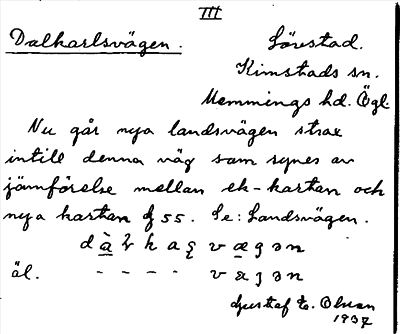 III
Dalkarlsvägen.
Lörestad.
Kimstads sn.
Memmings hd. Ögl.
Nu går nya landsvägen strax
intill denna väg som synes av
jämförelse mellan ek-kartan och
nya kartan df 55. Se: Landsvägen.
äl.
Gustaf E. Olson
1937